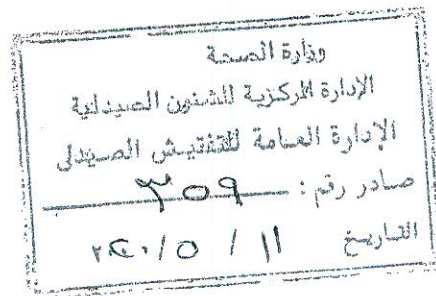 وزارة الصحة
الإدارة المركزية للشئون الصيدلية
الإدارة العامة للتفتيش الصيدلى
صادر رقم : ٣٥٩
التاريخ ١١ / ٥ / ٢٠٢٠